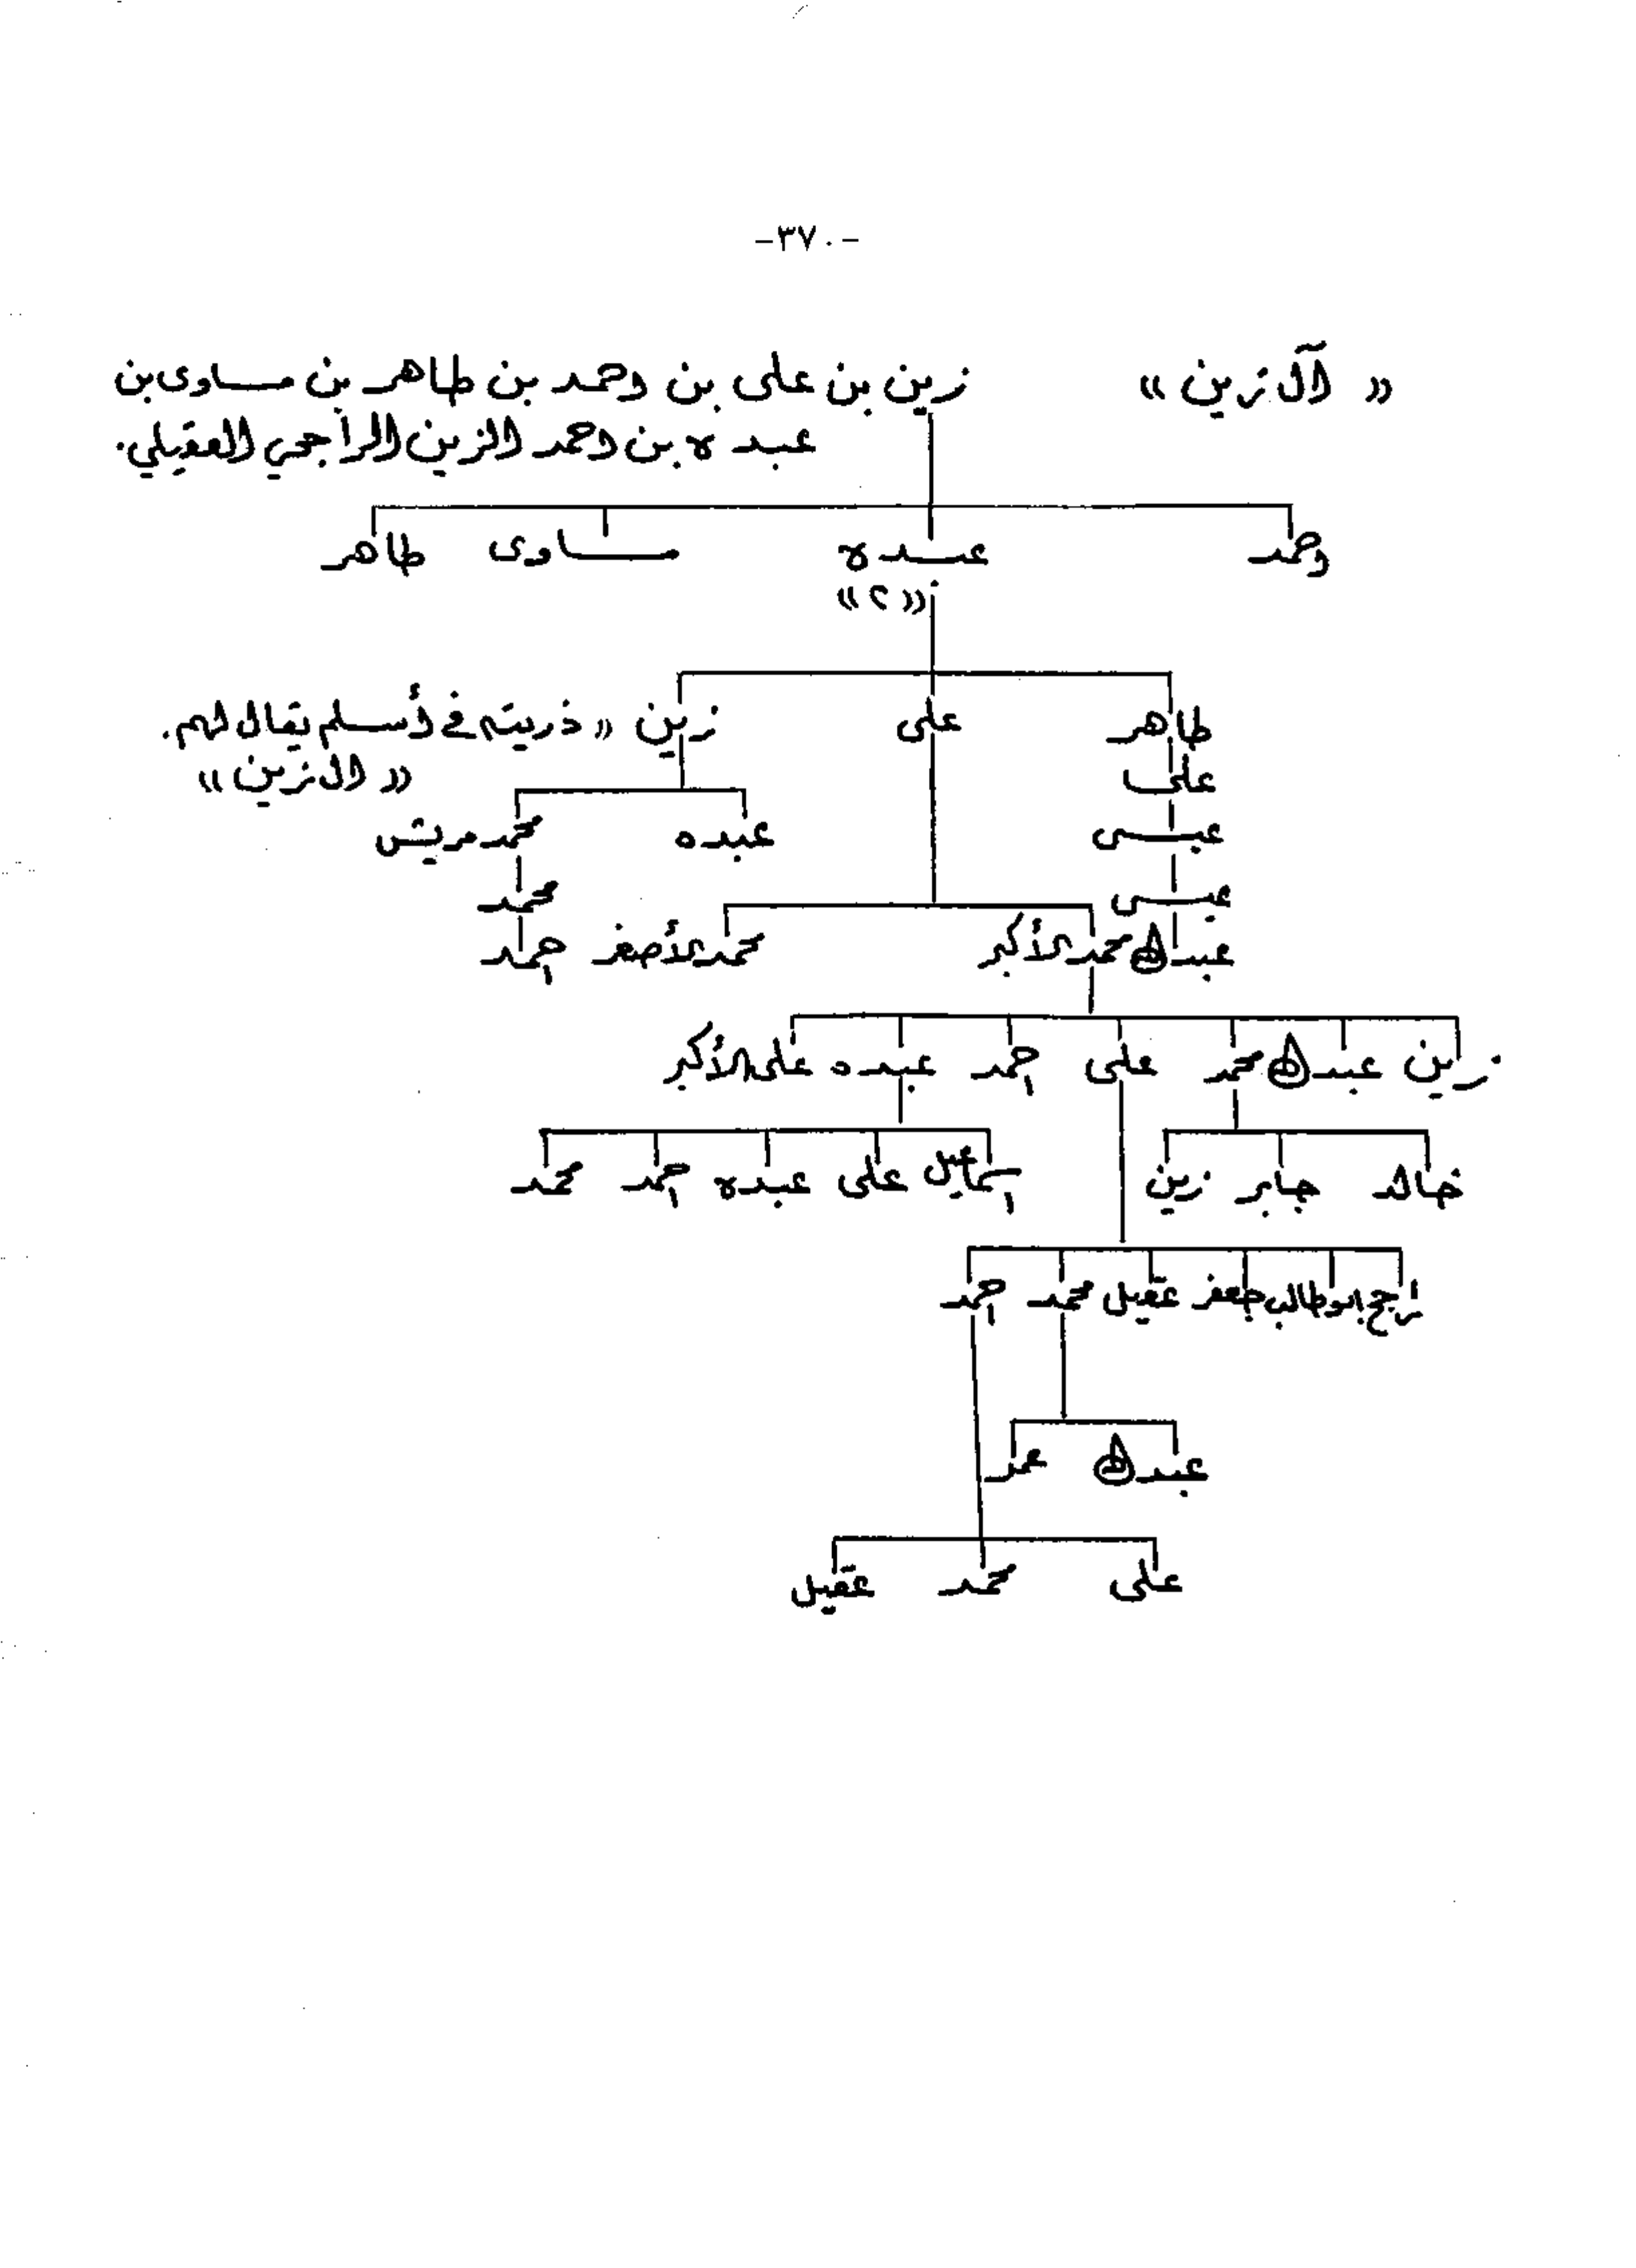 -٣٧٠-
« آل زين »
زين بن على بن احمد بن طاهر بن مساوى بن
عبده بن احمد الزين الراجحي العقيلي.
احمد عبده مساوى طاهر
«٢»
طاهر على زين « ذريته في أسلم يقال لهم.
على « ال زين »
عيسى عبده محمد مريش
عيسى محمد
عبدالله محمد الأكبر محمد الأصغر احمد
زين عبدالله محمد على احمد عبده على الأكبر
خالد جابر زين اسماعيل على عبده احمد محمد
راجح ابوطالب جعفر عقيل محمد احمد
عبدالله عمر
على محمد عقيل